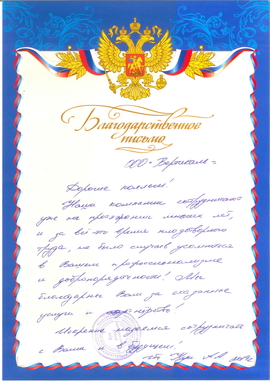 Благодарственное
письмо
ООО «
Дорогие коллеги!
Наша компания сотрудничает
уже на протяжении многих лет,
и за всё это время плодотворного
труда, не было случаев усомниться
в Вашем профессионализме
и добропорядочности! Мы
благодарны Вам за оказанные
услуги и
Искренне надеемся сотрудничать
с Вами и в будущем!